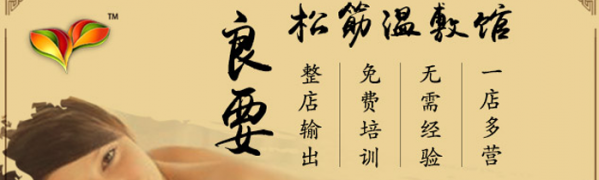 ™
良要
松筋温敷馆
整店输出
免费培训
无需经验
一店多营